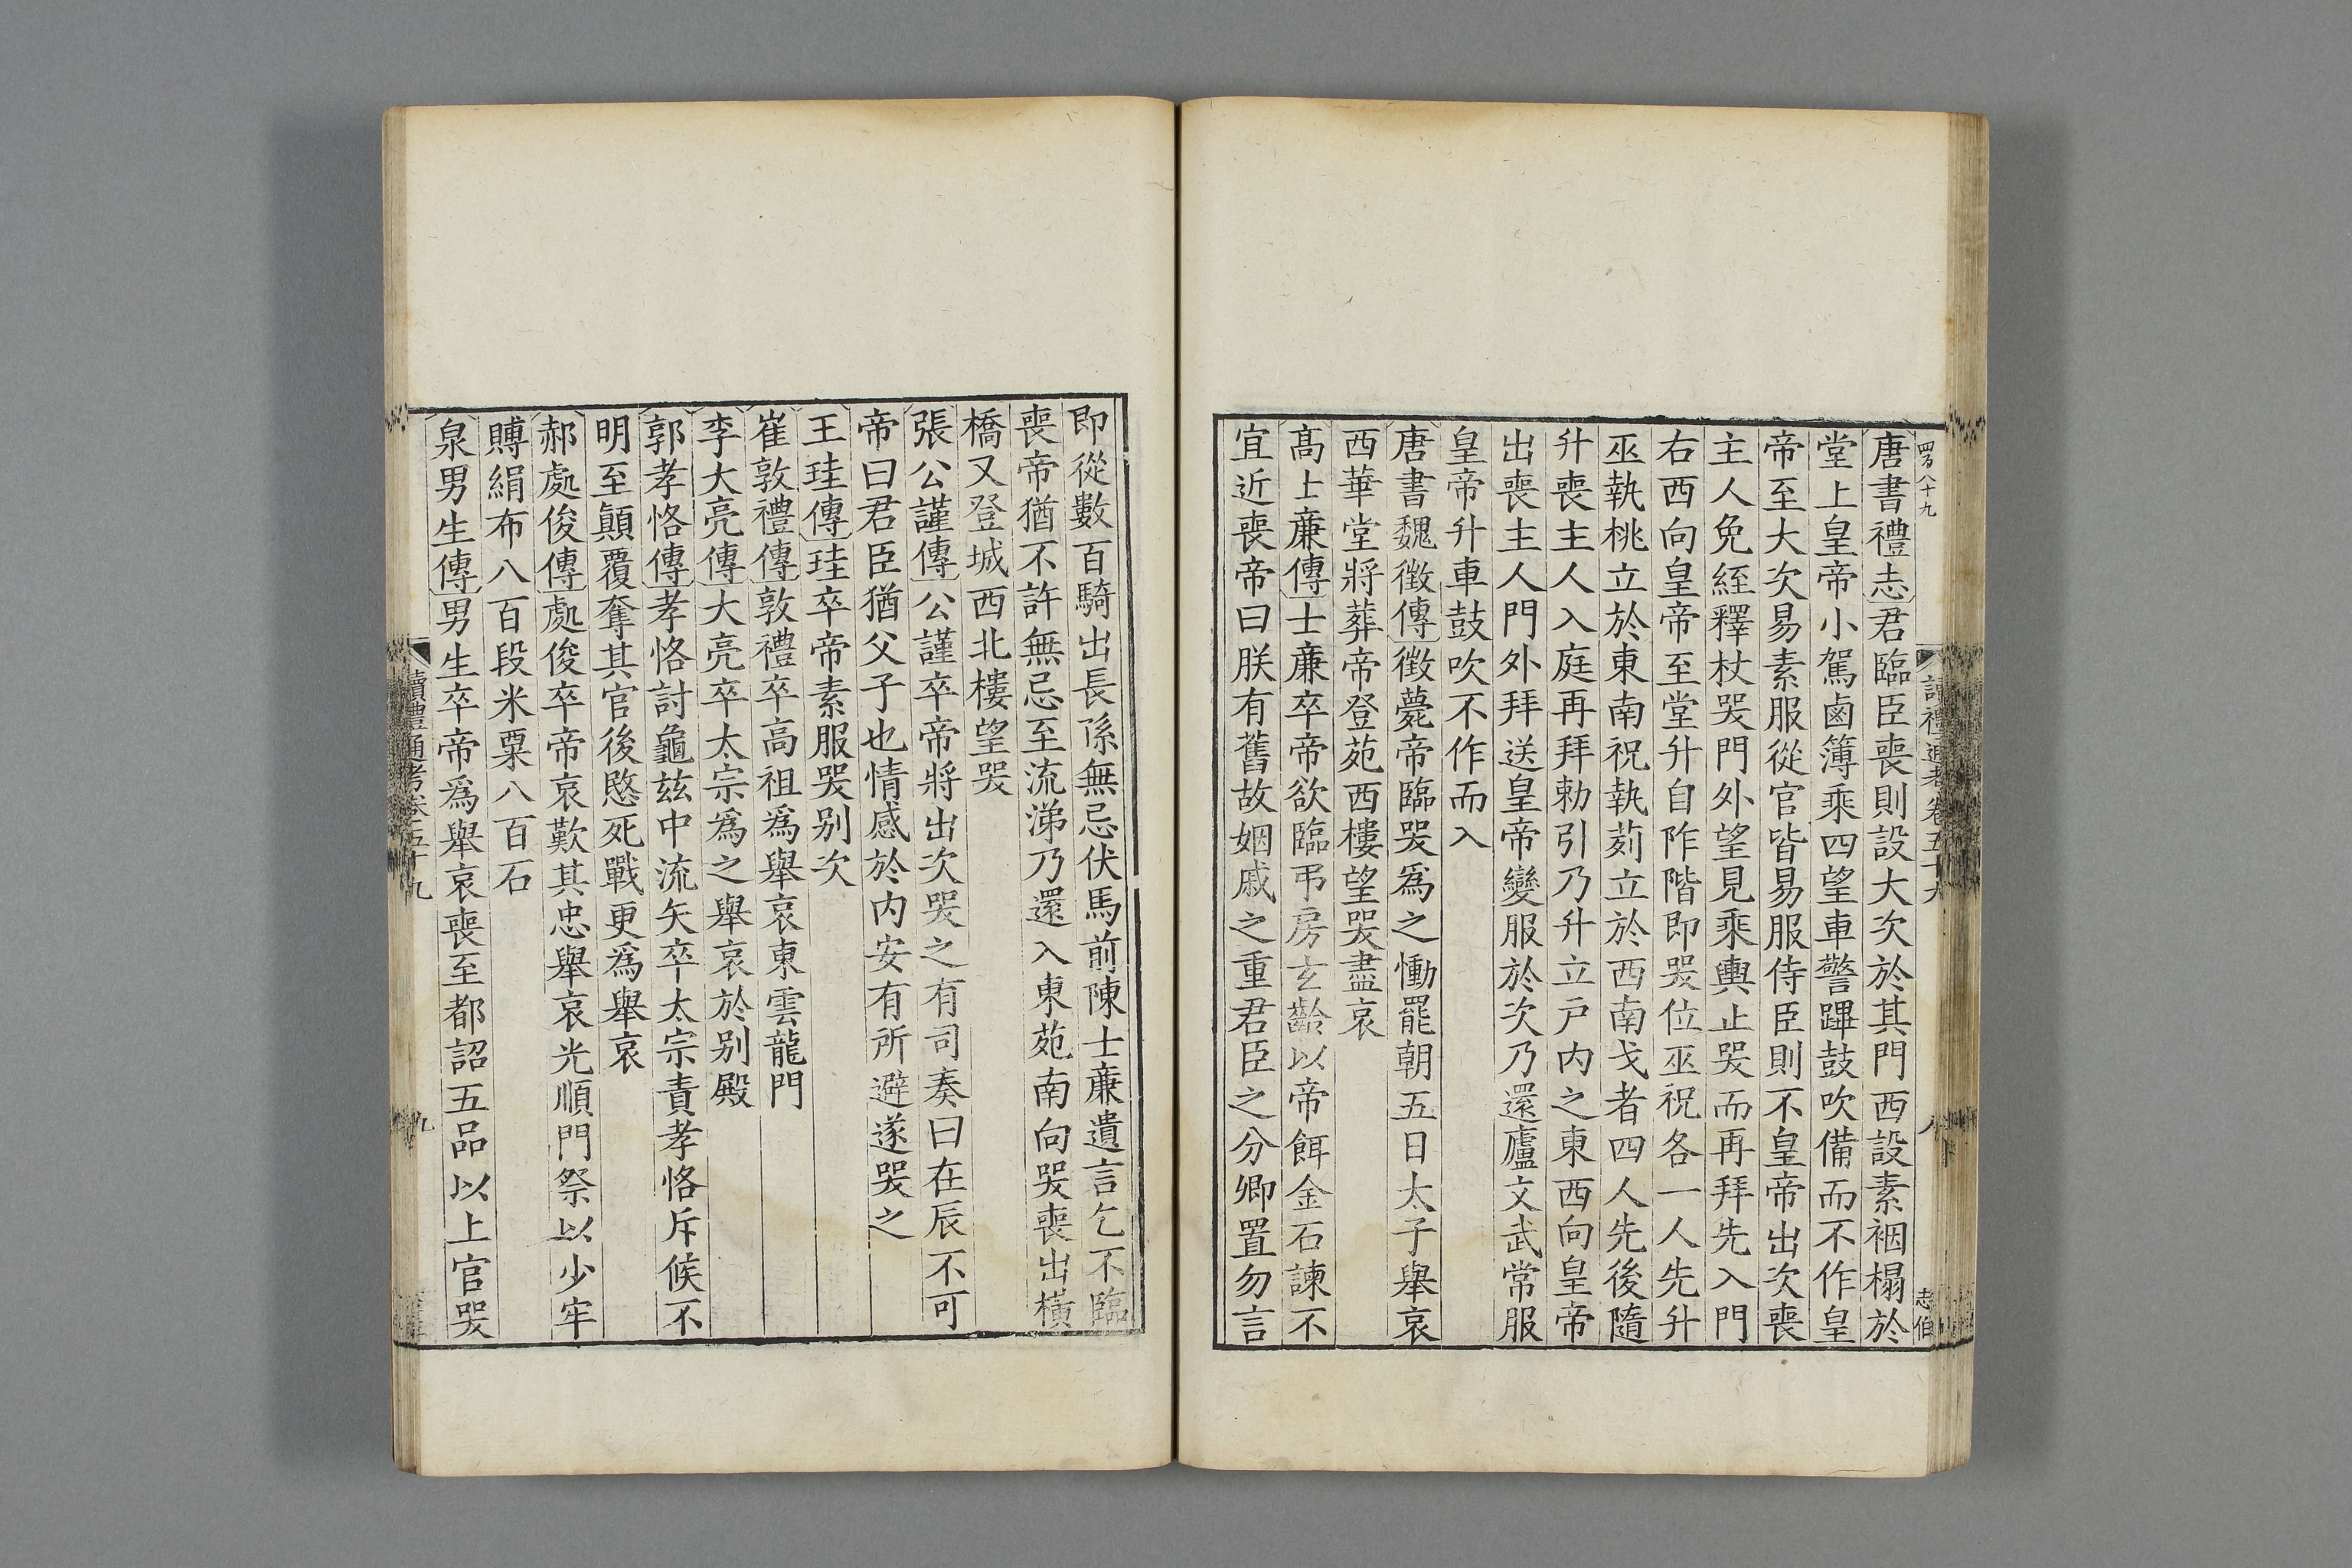 唐書禮志君臨臣喪則設大次於其門西設素裀榻於
堂上皇帝小駕鹵簿乘四望車警蹕鼓吹備而不作皇
帝至大次易素服從官皆易服侍臣則不皇帝出次喪
主人免絰釋杖哭門外望見乘輿止哭而再拜先入門
右西向皇帝至堂升自阼階即哭位巫祝各一人先升
巫執桃立於東南祝執茢立於西南戈者四人先後隨
升喪主人入庭再拜勅引乃升立戶內之東西向皇帝
出喪主人門外拜送皇帝變服於次乃還廬文武常服
皇帝升車鼓吹不作而入
唐書魏徵傳徵薨帝臨哭爲之慟罷朝五日太子舉哀
西華堂將葬帝登苑西樓望哭盡哀
高士廉傳士廉卒帝欲臨弔房玄齡以帝餌金石諫不
宜近喪帝曰朕有舊故姻戚之重君臣之分卿置勿言
四百八十九
讀禮通考卷五十九
八
志伯
即從數百騎出長孫無忌伏馬前陳士廉遺言乞不臨
喪帝猶不許無忌至流涕乃還入東苑南向哭喪出橫
橋又登城西北樓望哭
張公謹傳公謹卒帝將出次哭之有司奏曰在辰不可
帝曰君臣猶父子也情感於內安有所避遂哭之
王珪傳珪卒帝素服哭别次
崔敦禮傳敦禮卒高祖爲舉哀東雲龍門
李大亮傳大亮卒太宗爲之舉哀於别殿
郭孝恪傳孝恪討龜兹中流矢卒太宗責孝恪斥候不
明至顚覆奪其官後愍死戰更爲舉哀
郝處俊傳處俊卒帝哀歎其忠舉哀光順門祭以少牢
賻絹布八百段米粟八百石
泉男生傳男生卒帝爲舉哀喪至都詔五品以上官哭
讀禮通考卷五十九
九